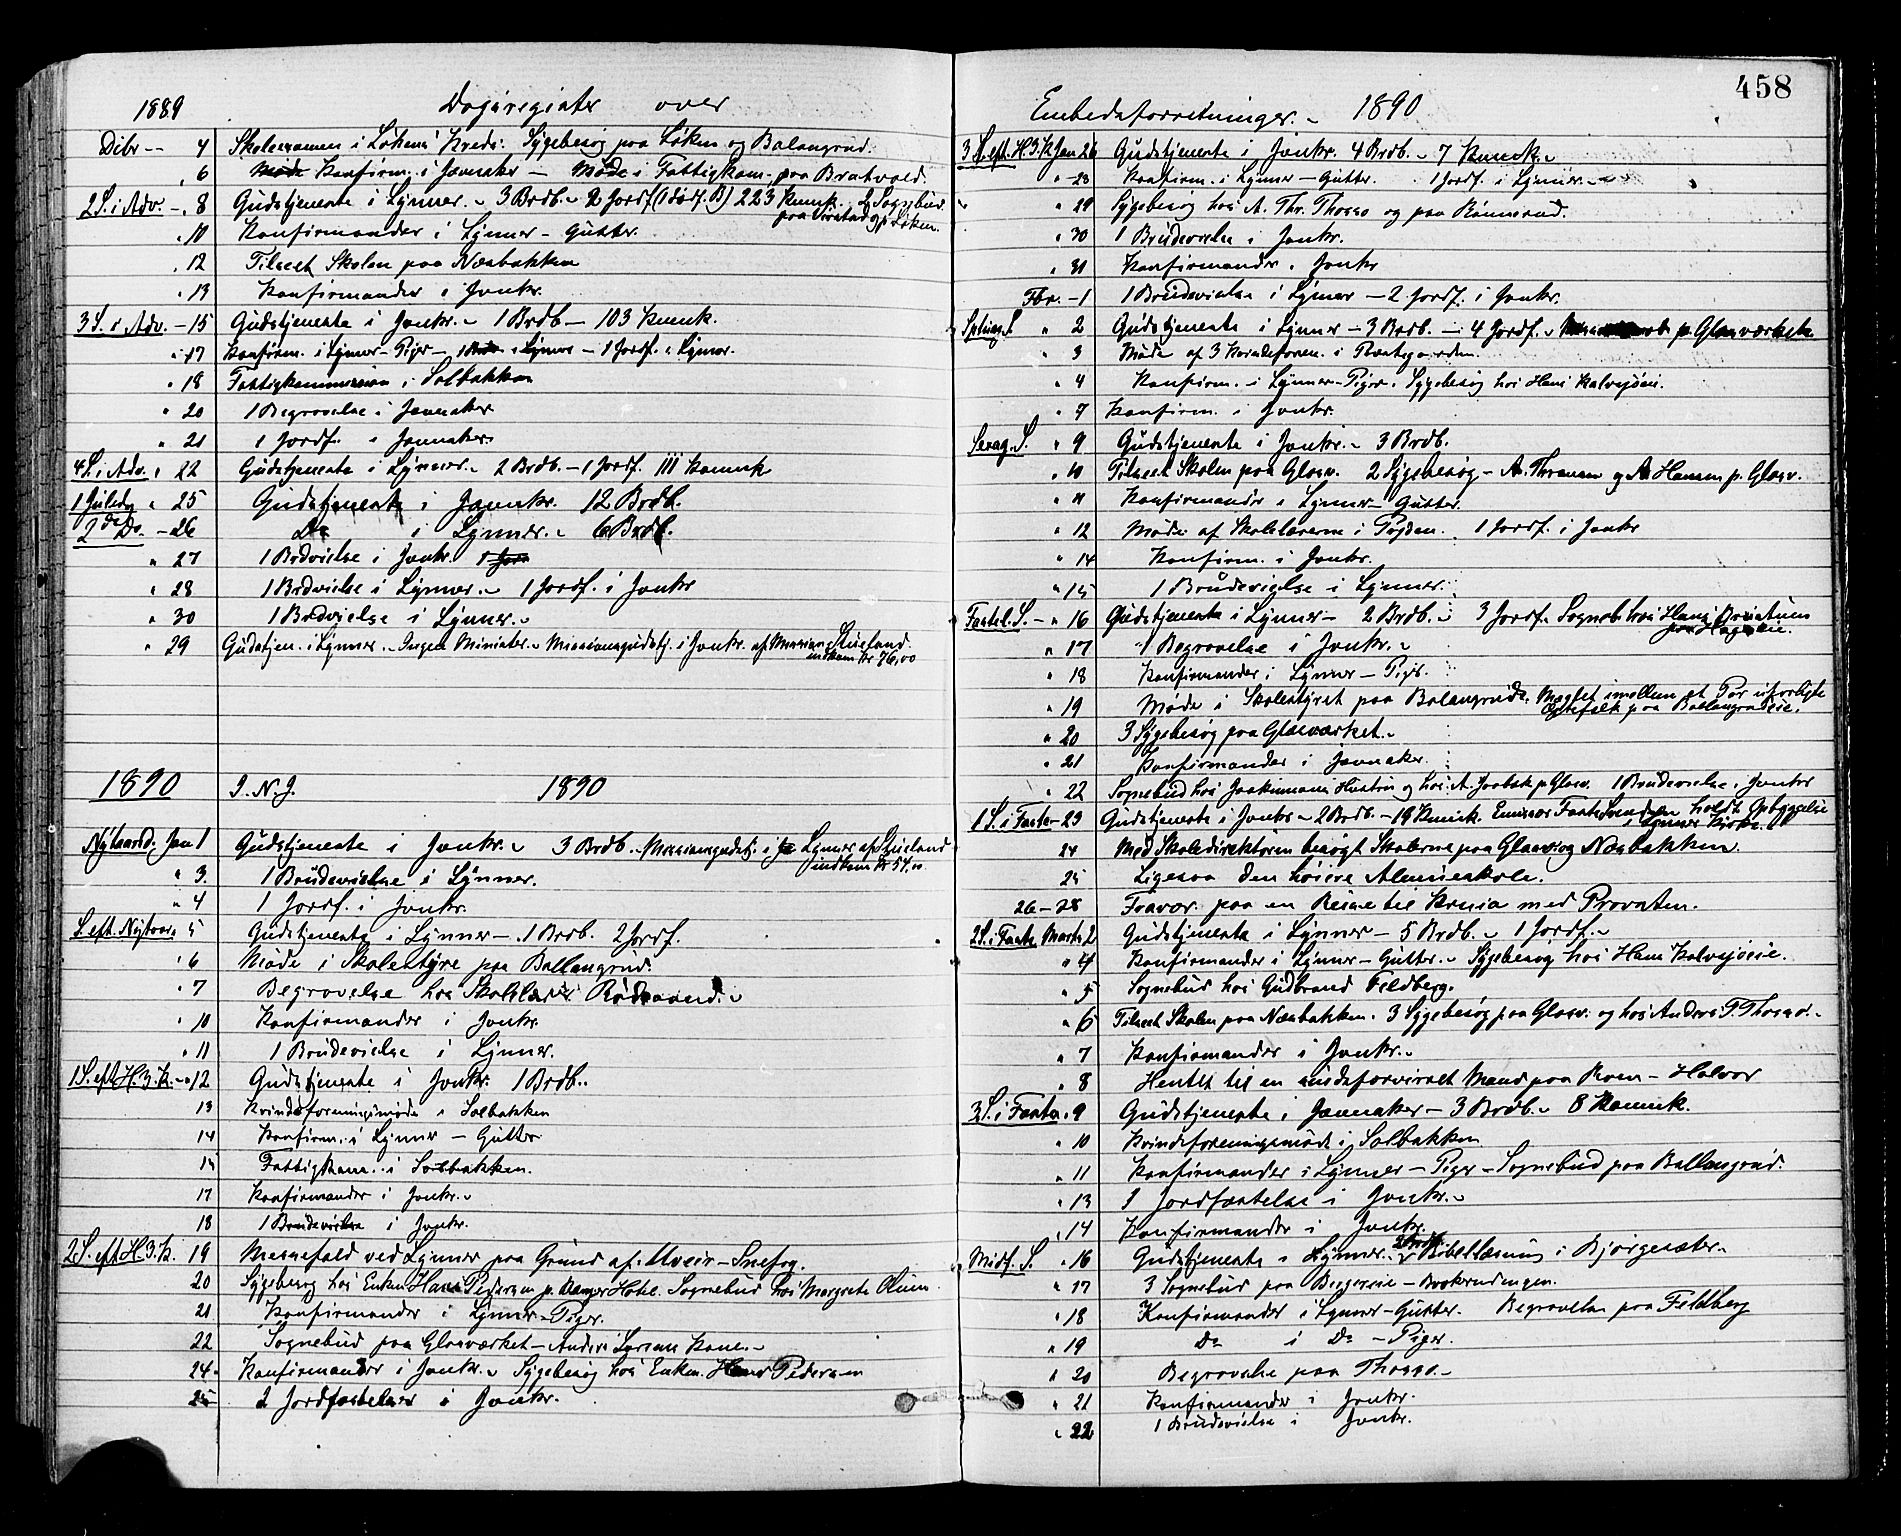 1889 Dagsregister over
Dcbr -- 4 Skoleexamen i Løkens Kreds. Sygebesøg paa Løken og Balangrud.
" 6 Møde Konfirm. i Jævnaker — Møde i Fattigkom. paa Bratvold.
2 S. i Adv. - " 8 Gudstjeneste i Lynner. - 3 Brdb. - 2 Jordf (1 dødf. B) 223 Kmnk. 2 Sognebud
paa og Løken.
" 10 Konfirmander i Lynner - Gutter.
" 12 Tilseet Skolen paa Næsbakken
" 13 Konfirmander i Jvnkr.
3 S. i Adv. - 15 Gudstjeneste i Jvnkr. - 1 Brdb - 103 Kmnk.
" 17 Konfirm. i Lynner - Piger - 1 Brdv. i Lynner - 1 Jordf. i Lynner.
" 18 Fattigkommission i Solbakken
" 20 1 Begravelse i Jævnaker
" 21 1 Jordf. i Jævnaker
4 S. i Adv. " 22 Gudstjeneste i Lynner. - 2 Brdb. - 1 Jordf. 111 Kmnk
1 Juledag " 25 Gudstjeneste i Jævnkr. 12 Brdb.
2den Do. - 26 Do i Lynner. - 6 Brdb.
" 27 1 Brdvielse i Jvnkr. 1 Jor
" 28 1 Brdvielse i Lynner. - 1 Jordf. i Jvnkr
" 30 1 Brdvielse i Lynner. -
" 29 Gudstjen. i Lynner. - Ingen Minister. - Missionsgudstj. i Jvnkr. af Mission. Stueland.
indkom Kr 76,00
1890 I. N. J. 1890
Nytaarsd. Jan 1 Gudstjeneste i Jvnkr. - 3 Brdb. - Missionsgudstj. i Ja Lynner af Stueland
indkom Kr 54,00
" 3. 1 Brudevielse i Lynner.
" 4 1 Jordf. i Jvnkr.
S. eft. Nytaar " 5 Gudstjeneste i Lynner - 1 Brdb. 2 Jordf.
" 6 Møde i Skolestyre paa Ballangrud.
" 7 Begravelse hos Skolelær.
" 10 Konfirmander i Jvnkr.
" 11 1 Brudevielse i Lynner.
1 S. eft H. 3. K. - " 12 Gudstjeneste i Jvnkr. 1 Brdb..
13 Kvindeforeningsmøde i Solbakken
14 Konfirm. i Lynner - Gutter
15 Fattigkom. i Solbakken.
17 Konfirmander i Jvnkr. -
18 1 Brudevielse i Jvnkr.
2 S. eft H. 3. K. 19 Messefald ved Lynner paa Grund af Uveir - Snefog.
20 Sygebesøg hos Enken Hans Pedersen p. Hotel. Sognebud hos Margrete Olum.
21 Konfirmander i Lynner - Piger.
22 Sognebud paa Glasværket - Anders Larsens Kone. -
24 Konfirmander i Jvnkr. - Sygebesøg hos Enken Hans Pedersen
25 2 Jordfæstelser i Jvnkr.
458
Embedsforretninger. - 1890
3 S. eft. H. 3. K Jan 26 Gudstjeneste i Jvnkr. 4 Brdb. - 7 Kmnk. -
" 28 Konfirm. i Lynner - Gutter. 1 Jordf. i Lynner. -
" 29 Sygebesøg hos A. Thr. Thosso og paa Rønnerud.
" 30 1 Brudevielse i Jvnkr.
" 31 Konfirmander i Jvnkr
Fbr. - 1 1 Brudevielse i Lynner - 2 Jordf. i Jvnkr.
Sptuag. S " 2 Gudstjeneste i Lynner - 3 Brdb. - 4 Jordf. - p. Glasværket.
" 3 Møde af 3 Kvindeforen. i Præstegaarden.
" 4 Konfirm. i Lynner - Piger. Sygebesøg hos Hans Kalvsjøeie.
" 7 Konfirm. i Jvnkr.
Sexag. S. " 9 Gudstjeneste i Jvnkr. - 3 Brdb.
" 10 Tilseet Skolen paa Glasv. 2 Sygebesøg - A. Thoresen og A Hansen p. Glasv.
" 11 Konfirmander i Lynner - Gutter.
" 12 Møde af Skolelærerne i Bygden. 1 Jordf. i Jvnkr
" 14 Konfirm. i Jvnkr.
" 15 1 Brudevielse i Lynner.
Fastel. S. - " 16 Gudstjeneste i Lynner - 2 Brdb. - 3 Jordf. Sogneb. hos Hans
" 17 1 Begravelse i Jvnkr. -
" 18 Konfirmander i Lynner - Pigr.
" 19 Møde i Skolestyret paa Balangrud. Mæglet imellem et Par uforligte
Ægtefolk paa Ballangrudeie.
" 20 3 Sygebesøg paa Glasværket. -
" 21 Konfirmander i Jævnaker.
" 22 Sognebud hos Joakimsens Hustru og hos A. Jvnbek p. Glasv. 1 Brudevielse i Jvnkr
1 S. i Faste - 23 Gudstjeneste i Jvnkr - 2 Brdb. - 19 Kmnk. Emissær holdt Opbyggelse
i Lynner Kirke.
24 Med Skoledirektøren besøgt Skolerne paa Glasv og Næsbakken.
25 Ligesaa den høiere Almueskole.
26 - 28 Fravær. paa en Reise til Krnia med Provsten.
2 S. i Faste Marts 2 Gudstjeneste i Lynner - 5 Brdb. - 1 Jordf. -
" 4 Konfirmander i Lynner - Gutter. - Sygebesøg hos Hans Kalvsjøeie.
" 5 Sognebud hos Gudbrand Feldberg.
" 6 Tilseet Skolen paa Næsbakken. 3 Sygebesøg paa Glasv. og hos Anders T. Thosso. -
" 7 Konfirmander i Jvnkr. -
" 8 Hentet til en sindsforvirret Mand paa Roen - Halvor
3 S. i Faste " 9 Gudstjeneste i Jævnaker - 3 Brdb. - 8 Kmnk.
" 10 Kvindeforeningsmøde i Solbakken
" 11 Konfirmander i Lynner - Piger - Sognebud paa Ballangrud.
" 13 1 Jordfæstelse i Jvnkr. -
" 14 Konfirmander i Jvnkr.
Midf. S. " 16 Gudstjeneste i Lynner. 2 Brdb. Bibellæsning i Bjørgesæter. -
" 17 3 Sognebud paa Bergerseie - Brakerudengen.
" 18 Konfirmander i Lynner - Gutter. Begravelse paa Feldberg
" 19 Do i Do - Piger.
" 20 Begravelse paa Thosso. -
" 21 Konfirmander i Jvnkr.
" 22 1 Brudevielse i Jvnkr.